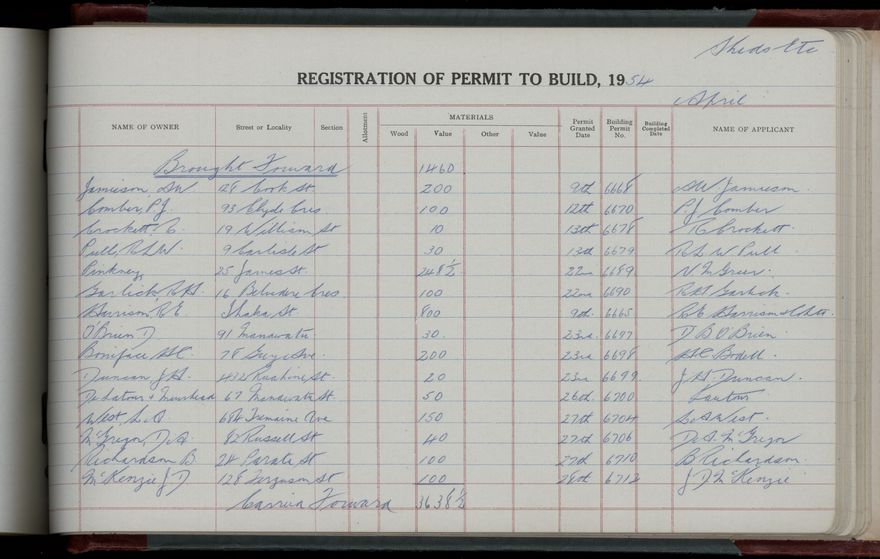 Sheds Etc
REGISTRATION OF PERMIT TO BUILD, 1954
April
NAME OF OWNER Street or Locality Section Allotment MATERIALS Wood Value Other Value Permit Granted Date Building Permit No. Building Completed Date NAME OF APPLICANT
Brought Forward 1460
Jamieson, S.W. 128 Cook St 200 9th 6668 S.W. Jamieson
Comber, P.J. 93 Clyde Cres 100 12th 6670 P.J. Comber
Crockett, R. 19 William St 10 13th 6678 R Crockett
Pull, R.L.W. 9 Carlisle St 30 13th 6679 R.L.W Pull
Pinkney 25 James St 248½ 22nd 6689 N.M Greer
Garlick R.H. 16 Belvedere Cres 100 22nd 6690 R.H Garlick
Harrison R.E Ihaka St 800 9th 6665 R.E Harrison & Co Ltd
O'Brien D 91 Manawatu 30 23rd 6697 D B O'Brien
Boniface H.C. 78 Greys Ave 200 23rd 6698 H.C. Bodell
Duncan J.H. 432 Ruahine St 20 23rd 6699 J.H. Duncan
Delatour & Muirhead 67 Manawatu St 50 26th 6700
West, L.A. 684 Tremaine Ave 150 27th 6704 L.A West
McGregor, D.A. 82 Russell St 40 27th 6706 D.A. McGregor
Richardson B. 24 Parata St 100 27th 6710 B Richardson
McKenzie J D 128 Ferguson St 100 28th 6712 J D McKenzie
Carried Forward 3638½